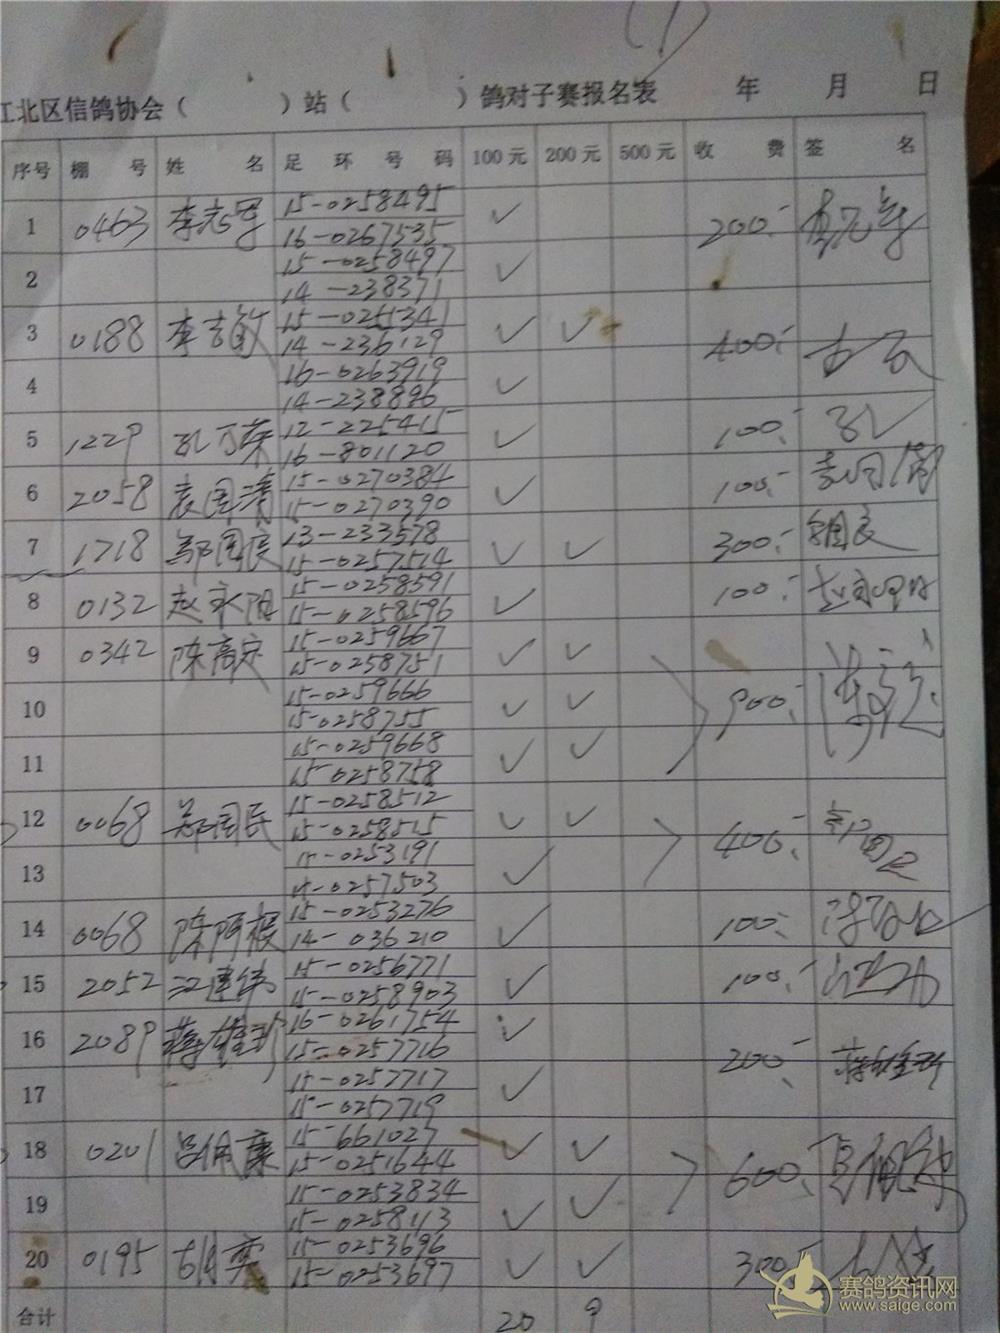 (1)
江北区信鸽协会( )站( )鸽对子赛报名表 年 月 日
序号 棚号 姓名 足环号码 100元 200元 500元 收费 签名
1 0463 李志军 15-0258495 ✓ 200.-
16-0267535
2 15-0258497 ✓
14-238371
3 0188 李吉敏 15-0251341 ✓ ✓ 400.-
14-236129
4 16-0263919 ✓
14-238886
5 1229 孔万荣 12-225415 ✓ 100.- 孔
16-801120
6 2058 袁国清 15-0270384 ✓ 100.- 袁国清
15-0270390
7 1718 邬国良 13-233578 ✓ ✓ 300.- 邬国良
15-0257514
8 0132 赵永阳 15-0258591 ✓ 100.- 赵永阳
15-0258596
9 0342 陈高定 15-0259667 ✓ ✓ 900.- 陈高定
15-0258751
10 15-0259666 ✓ ✓
15-0258755
11 15-0259668 ✓ ✓
15-0258758
12 0068 郑国民 15-0258512 ✓ ✓ 400.- 郑国民
15-0258515
13 15-0253191 ✓
15-0257503
14 0068 陈阿根 15-0253276 ✓ 100.-
14-036210
15 2052 江建伟 15-0256771 ✓ 100.-
15-0258903
16 2089 16-0261754 ✓ 200.-
15-0257716
17 15-0257717 ✓
15-0257719
18 0201 吕佩康 15-661027 ✓ ✓ 600.- 吕佩康
15-0251644
19 15-0253834 ✓ ✓
15-0258113
20 0195 15-0253696 ✓ ✓ 300.-
15-0253697
合计 20 9
赛鸽资讯网
www.saige.com